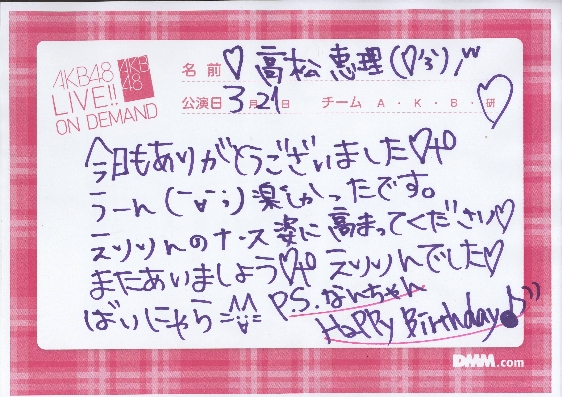 AKB48
LIVE!!
ON DEMAND
AKB
48
名前 ♡高松恵理(♡'3')/""
公演日 3月21日 チーム A・K・B・研
今日もありがとうございました♡
うーん(¯∇¯;)楽しかったです。
えりりんのナース姿に高まってください♡
またあいましょう♡ えりりんでした♡
ばいにゃら =^ÿ^=
P.S. なんちゃん
Happy Birthday♪
DMM.com